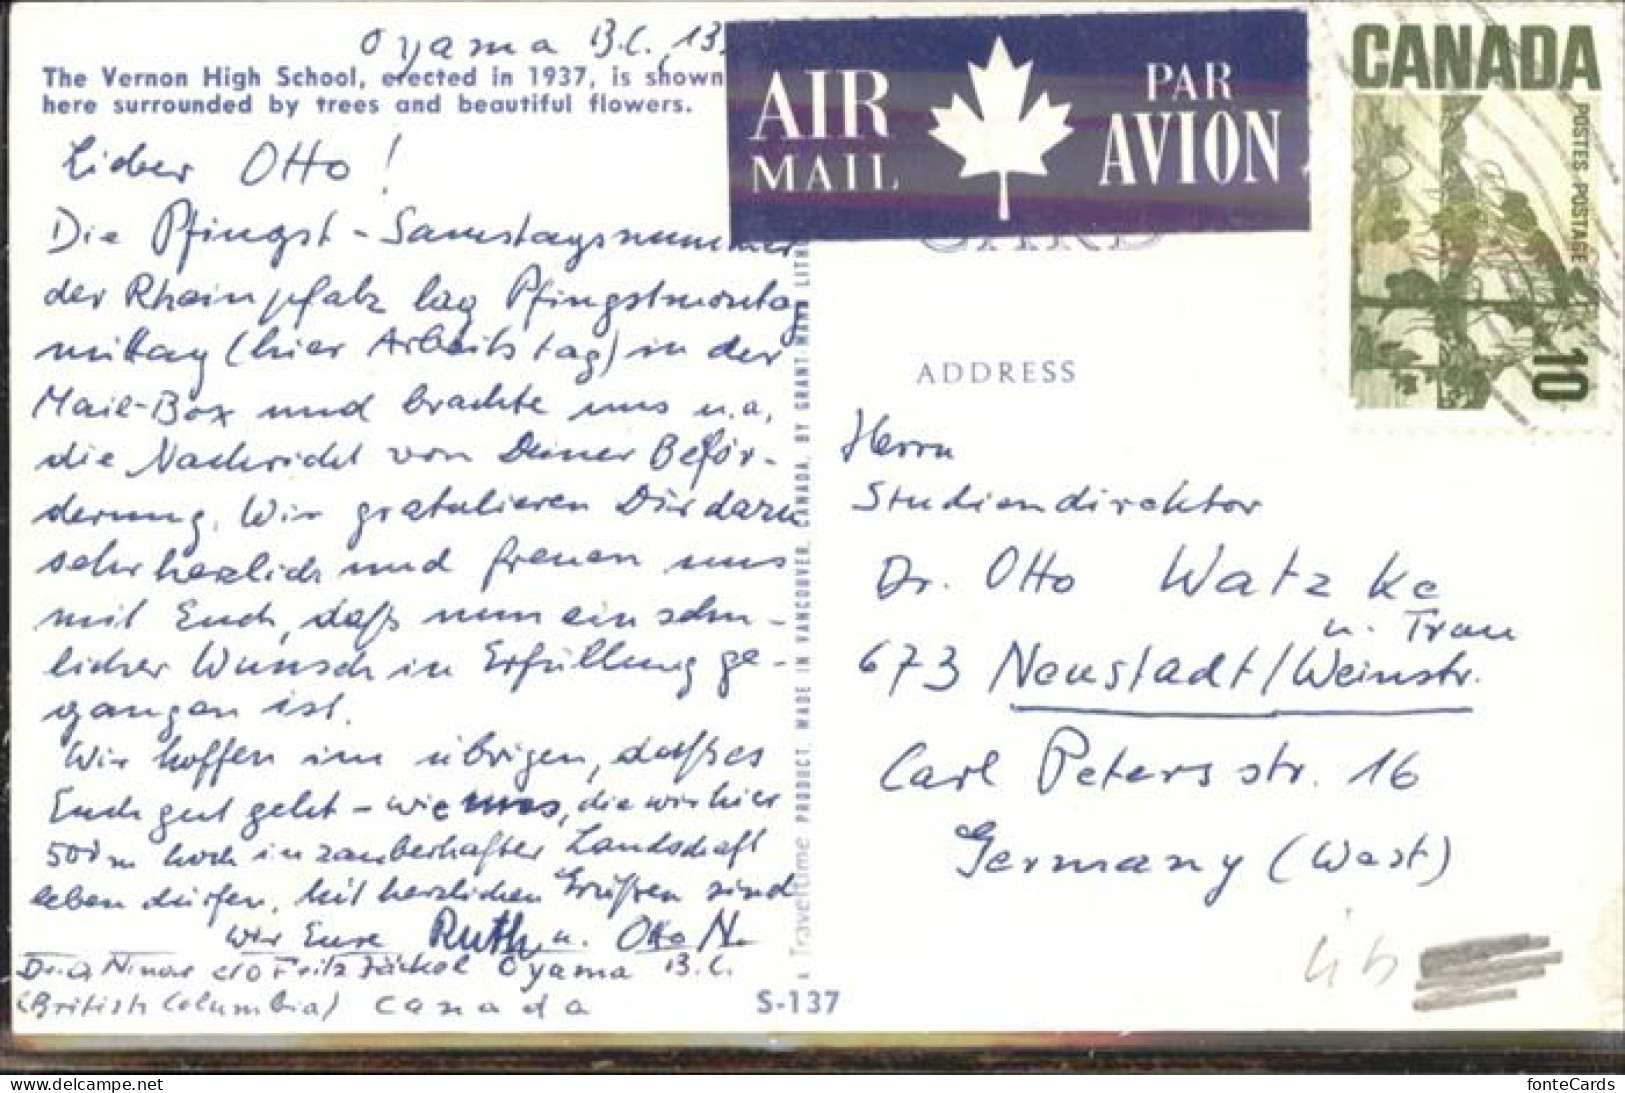 Oyama B.C. 13
The Vernon High School, erected in 1937, is shown
here surrounded by trees and beautiful flowers.
Lieber Otto!
Die Pfingst-Samstagsnummer
der Rheinpfalz lag Pfingstmontag
mittag (hier Arbeitstag) in der
Mail-Box und brachte uns u.a.
die Nachricht von Deiner Beför-
derung. Wir gratulieren Dir dazu
sehr herzlich und freuen uns
mit Euch, daß nun ein sehn-
licher Wunsch in Erfüllung ge-
gangen ist.
Wir hoffen im übrigen, daß es
Euch gut geht - wie uns, die wir hier
500 m hoch in zauberhafter Landschaft
leben dürfen. Mit herzlichen Grüßen sind
wir Eure Ruth u. Otto N.
Dr. O. c/o Fritz Jäckel Oyama B.C.
(British Columbia) Canada
S-137
A Traveltime PRODUCT, MADE IN VANCOUVER, CANADA, BY GRANT-MANN LITHO
AIR MAIL
PAR AVION
CARD
CANADA
POSTES POSTAGE
10
ADDRESS
Herrn
Studiendirektor
Dr. Otto Watzke
u. Frau
673 Neustadt/Weinstr.
Carl Peters str. 16
Germany (West)
fonteCards